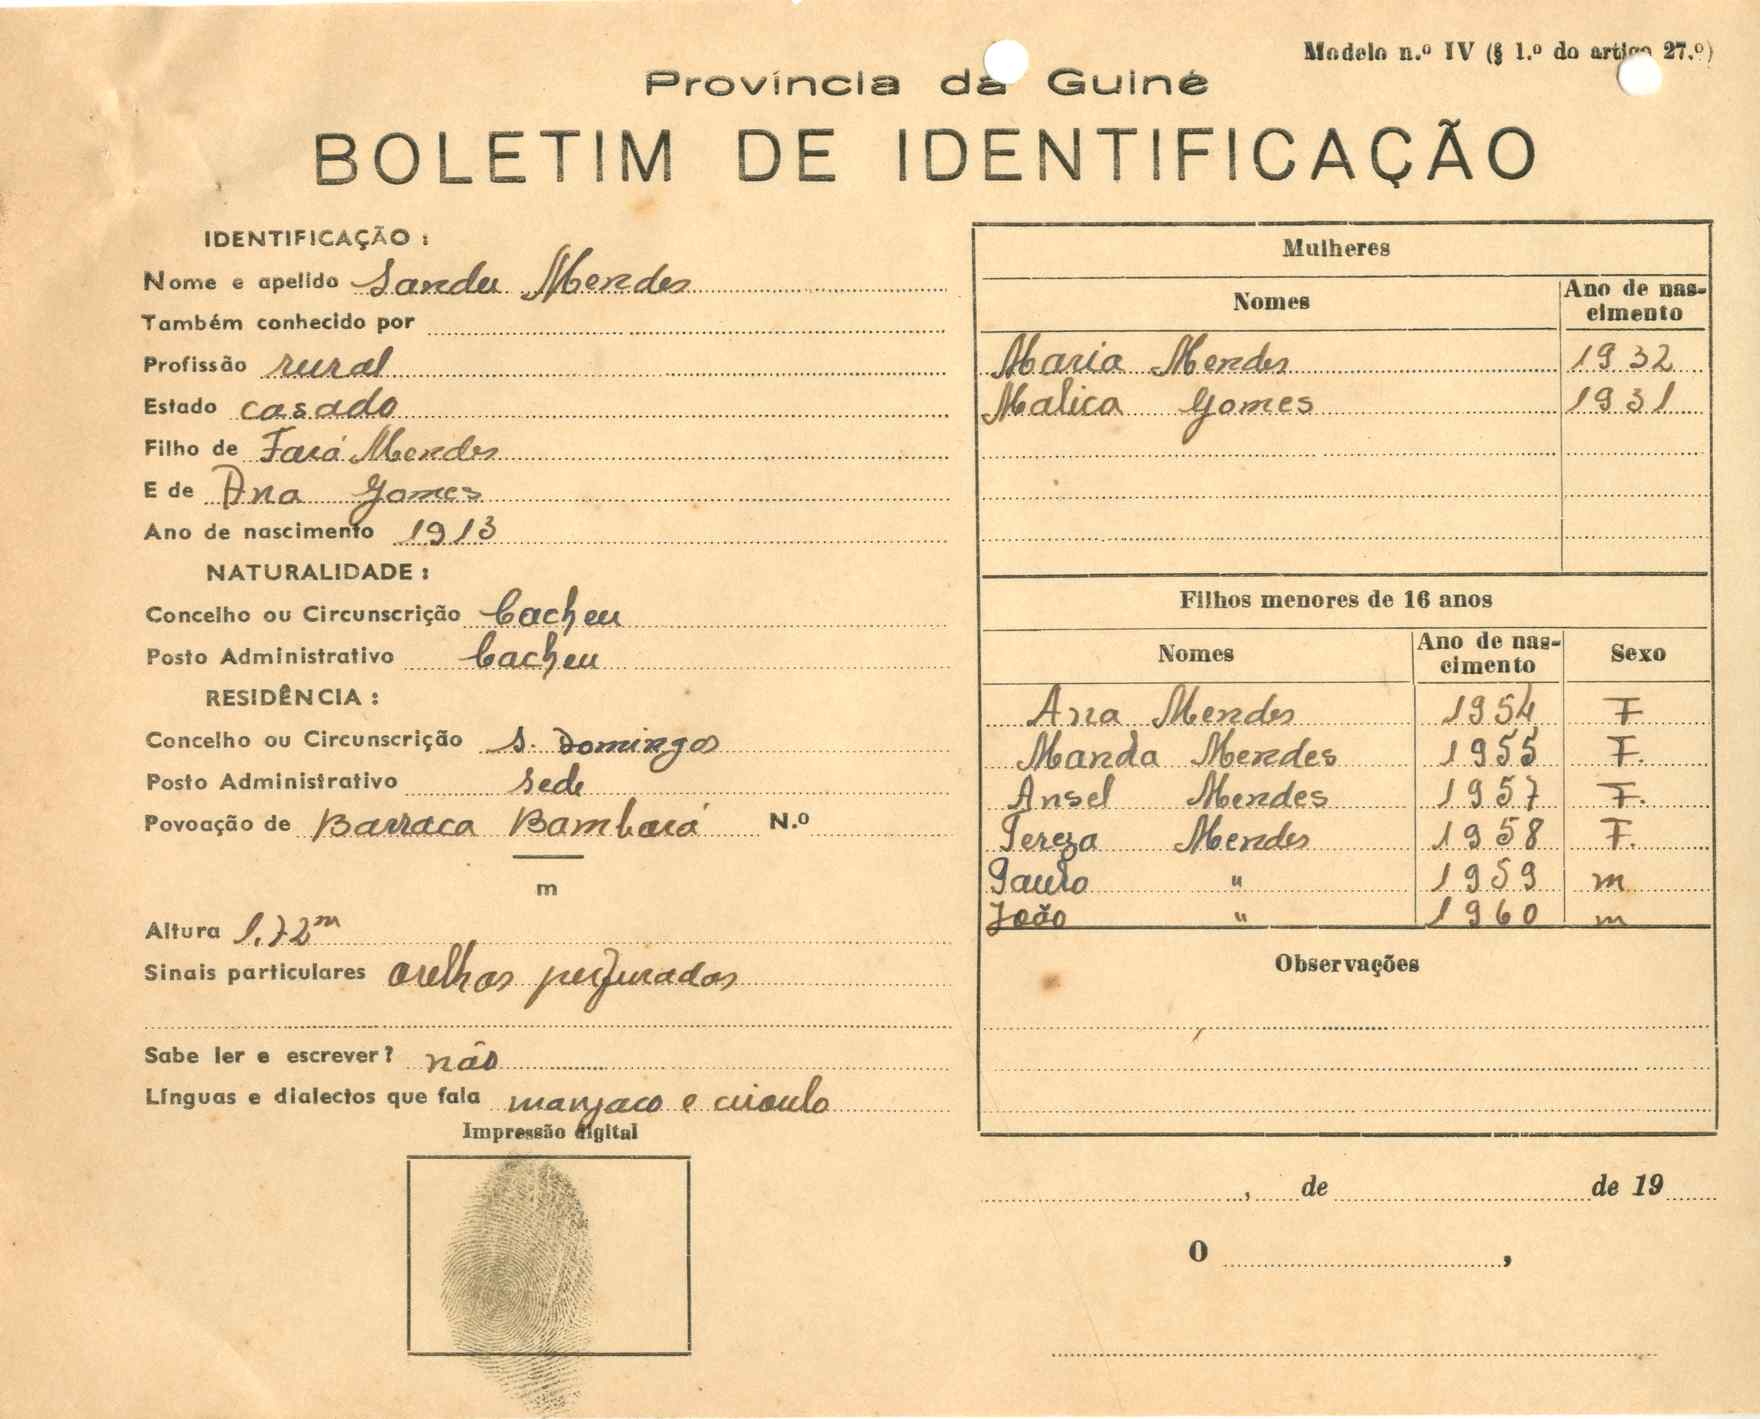 Modelo n.º IV (§ 1.º do artigo 27.º)
Província da Guiné
BOLETIM DE IDENTIFICAÇÃO
IDENTIFICAÇÃO :
Nome e apelido Sandu Mendes
Também conhecido por
Profissão rural
Estado casado
Filho de Fará Mendes
E de Ana Gomes
Ano de nascimento 1913
NATURALIDADE :
Concelho ou Circunscrição Cacheu
Posto Administrativo Cacheu
RESIDÊNCIA :
Concelho ou Circunscrição S. Domingos
Posto Administrativo Sede
Povoação de Barraca Bambará N.º
m
Altura 1.72m
Sinais particulares orelhas perfuradas
Sabe ler e escrever? não
Línguas e dialectos que fala manjaco e crioulo
Impressão digital
Mulheres
Nomes Ano de nas-
cimento
Maria Mendes 1932
Malica Gomes 1931
Filhos menores de 16 anos
Nomes Ano de nas-
cimento Sexo
Ana Mendes 1954 F
Manda Mendes 1955 F.
Ansel Mendes 1957 F.
Tereza Mendes 1958 F.
Paulo " 1959 m
João " 1960 m
Observações
, de de 19
O ,